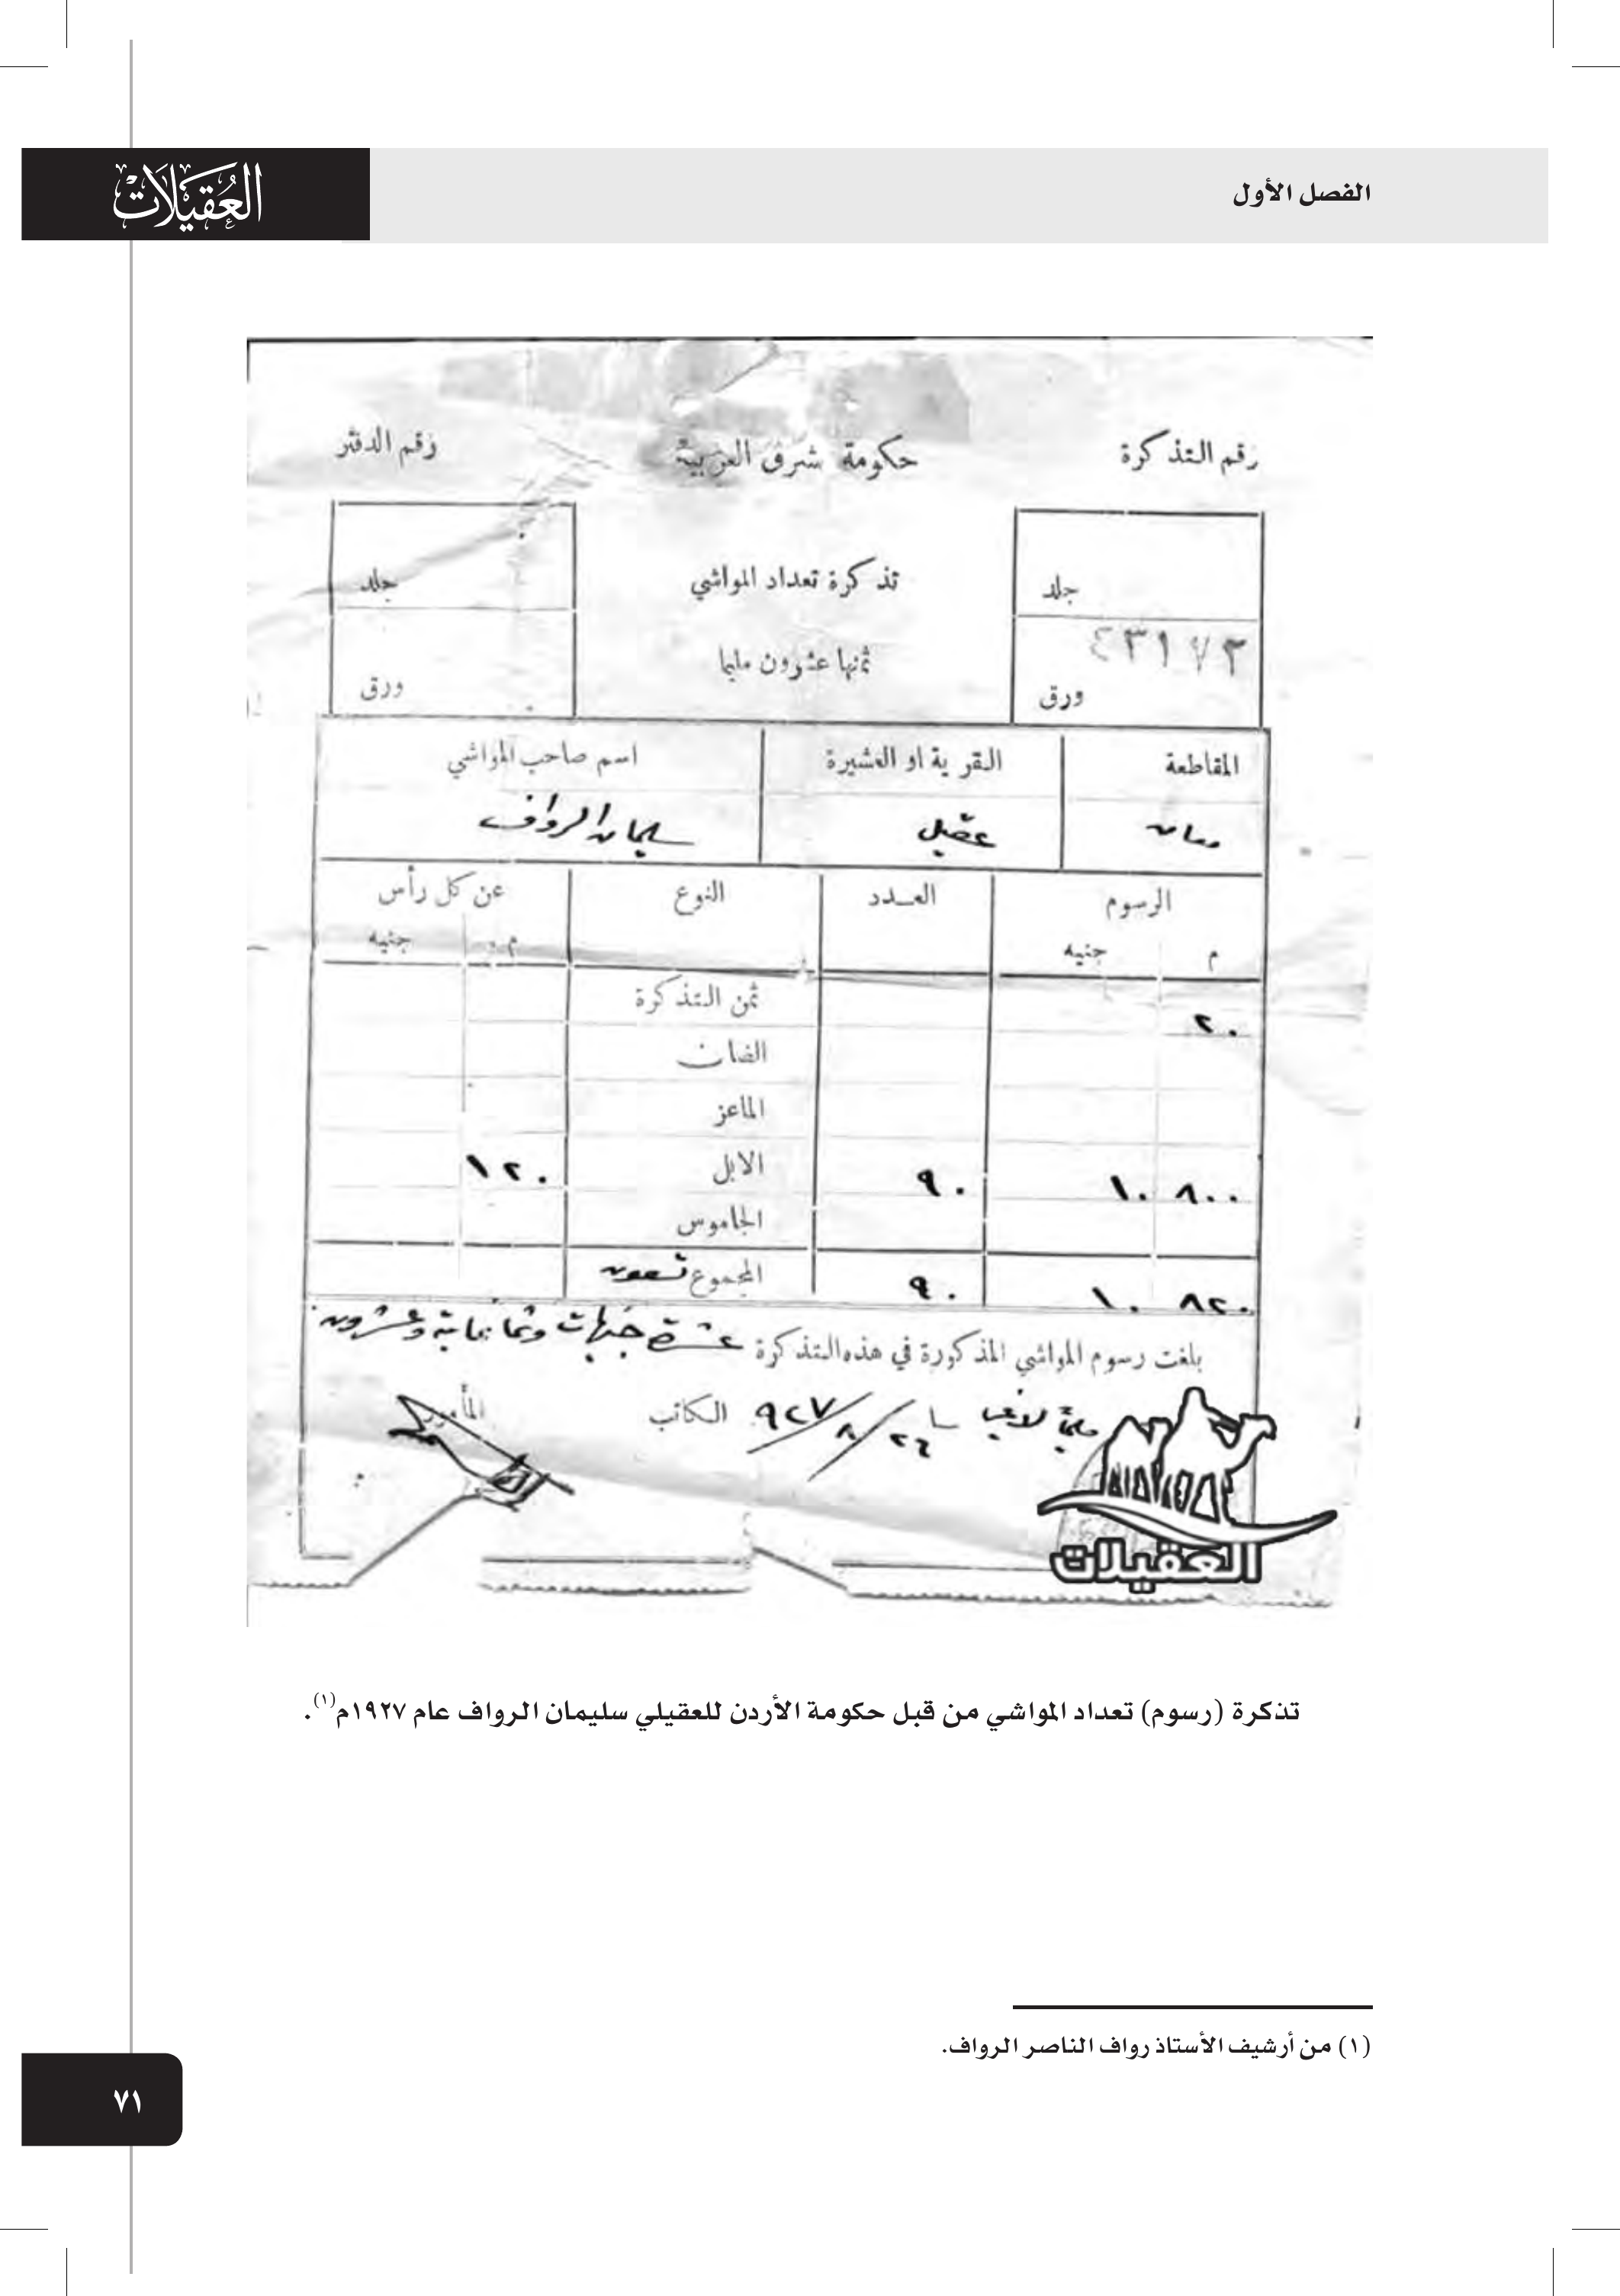 الفصل الأول
العُقَيلَات
رقم التذكرة حكومة شرق العربية رقم الدفتر
جلد تذكرة تعداد المواشي جلد
٤٣١٧٣
ورق ثمنها عشرون مليما ورق
المقاطعة القرية او العشيرة اسم صاحب المواشي
معان عقيل سليمان الرواف
الرسوم العدد النوع عن كل رأس
م جنيه م جنيه
٢٠ ثمن التذكرة
الضان
الماعز
٨٠٠ ١٠ ٩٠ الابل ١٢٠
الجاموس
٨٢٠ ١٠ ٩٠ المجموع تسعون
بلغت رسوم المواشي المذكورة في هذه التذكرة عشرة جنيهات وثمانماية وعشرون
مليماً لاغير ٢٤/٨/٩٢٧ الكاتب المأمور
العقيلات
تذكرة (رسوم) تعداد المواشي من قبل حكومة الأردن للعقيلي سليمان الرواف عام ١٩٢٧م(١).
(١) من أرشيف الأستاذ رواف الناصر الرواف.
٧١